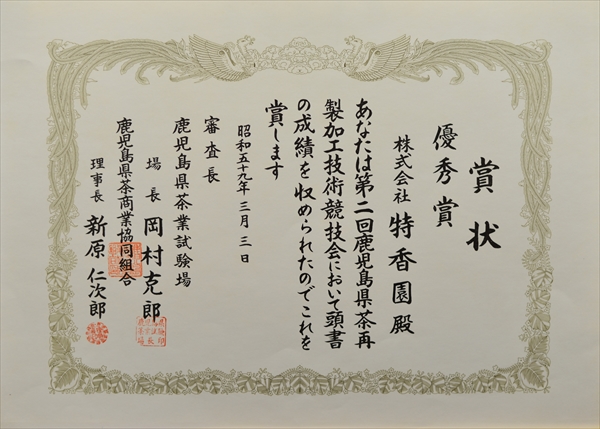 賞状
優秀賞
株式会社 特香園殿
あなたは第二回鹿児島県茶再
製加工技術競技会において頭書
の成績を収められたのでこれを
賞します
昭和五十九年三月三日
審査長
鹿児島県茶業試験場
場長 岡村克郎
鹿児島県茶商業協同組合
理事長 新原仁次郎